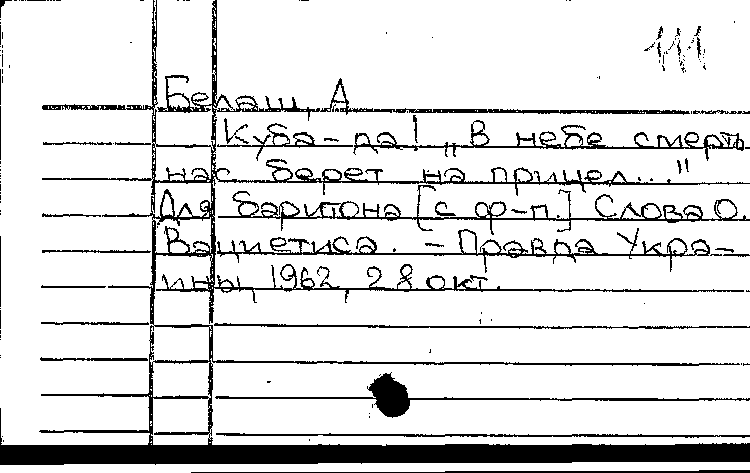 Белаш, А
Куба-да! „В небе смерть
нас берет на прицел..."
Для баритона [с ф-п.] Слова О.
Вациетиса. - Правда Укра-
ины, 1962, 28 окт.